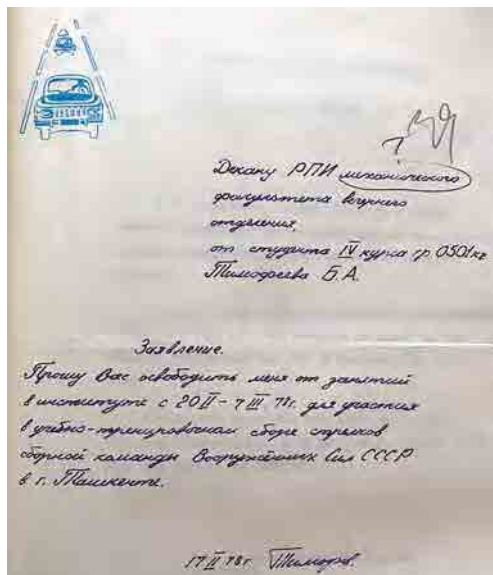 ?
Декану РПИ механического
факультета вечернего
отделения,
от студента IV курса гр. 0501кг
Тимофеева Б.А.
Заявление.
Прошу Вас освободить меня от занятий
в институте с 20 II – 7 III 78г. для участия
в учебно-тренировочном сборе стрелков
сборной команды Вооружённых Сил СССР
в г. Ташкенте.
17 II 78г.